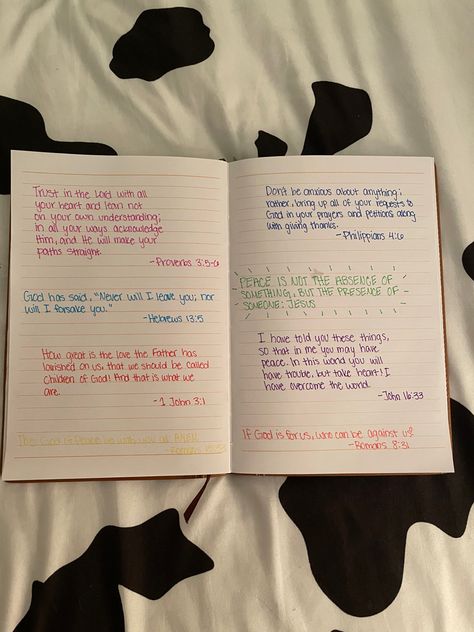 Trust in the Lord with all
your heart and lean not
on your own understanding;
in all your ways acknowledge
Him, and He will make your
paths straight.
-Proverbs 3:5-6
God has said, "Never will I leave you; nor
will I forsake you."
-Hebrews 13:5
How great is the love the Father has
lavished on us, that we should be called
children of God! And that is what we
are.
-1 John 3:1
The God of Peace be with you all. AMEN.
-Romans
Don't be anxious about anything;
rather, bring up all of your requests to
God in your prayers and petitions along
with giving thanks.
-Philippians 4:6
PEACE IS NOT THE ABSENCE OF
SOMETHING, BUT THE PRESENCE OF
SOMEONE: JESUS
I have told you these things,
so that in me you may have
peace. In this world you will
have trouble, but take heart! I
have overcome the world.
-John 16:33
If God is for us, who can be against us?
-Romans 8:31